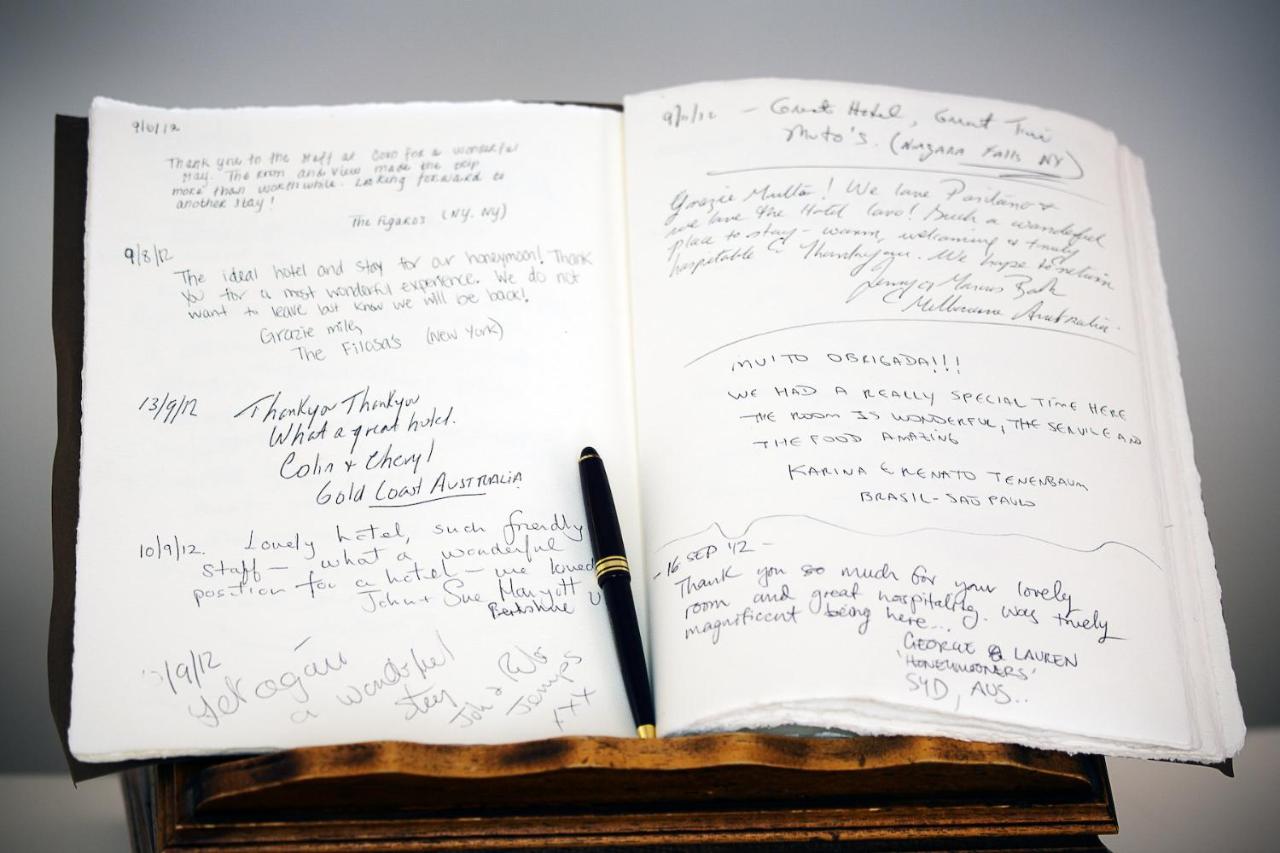 Thank you to the staff at Covo for a wonderful
stay. The room and view made the trip
more than worthwhile. Looking forward to
another stay!
The Figaros (NY, NY)
9/8/12
The ideal hotel and stay for our honeymoon! Thank
you for a most wonderful experience. We do not
want to leave but know we will be back!
Grazie mille
The Filosa's (New York)
13/9/12 Thankyou Thankyou
What a great hotel.
Colin + Cheryl
Gold Coast AUSTRALIA
10/9/12. Lovely hotel, such friendly
staff — what a wonderful
position for a hotel — we loved
John + Sue
Berkshire U
/9/12
Yet again
a wonderful
stay
John &
xxx
9/11/12 - Great Hotel, Great
(NIAGARA FALLS NY)
Grazie Multa! We love Positano &
we love the Hotel Covo! Such a wonderful
place to stay - warm, welcoming & truly
hospitable Thankyou. We hope to return
Jenny & Marcus
Melbourne Australia.
MUITO OBRIGADA!!!
WE HAD A REALLY SPECIAL TIME HERE
THE ROOM IS WONDERFUL, THE SERVICE AND
THE FOOD AMAZING
KARINA E RENATO TENENBAUM
BRASIL - SAO PAULO
- 16 SEP '12 -
Thank you so much for your lovely
room and great hospitality. was truely
magnificent being here...
GEORGE & LAUREN
'HONEYMOONERS'
SYD, AUS..